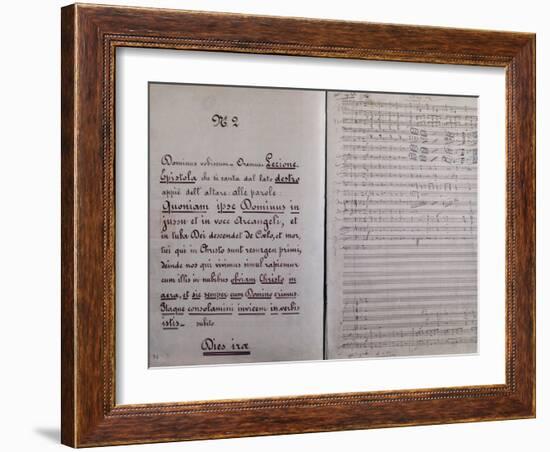 No 2
Dominus vobiscum - Oremus Lezione
Epistola che si canta dal lato destro
appiè dell'altare: alle parole:
Quoniam ipse Dominus in
jussu et in voce Arcangeli, et
in tuba Dei descendet de Cœlo, et mor,
tui qui in Christo sunt resurgen primi,
deinde nos qui vivimus simul rapiemur
cum illis in nubibus obviam Christo in
aera, et sic semper cum Domino erimus.
Itaque consolamini invicem in verbis
istis - subito
Dies iræ